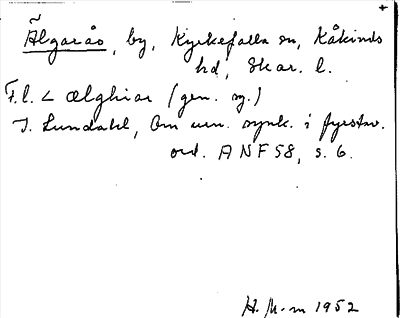 Älgarås, by, Kyrkefalla sn, Kåkinds
hd, Skar. l.
F.l. < ælghiar (gen. sg.)
I. Lundahl, Om urn. synk. i fyrstav.
ord. ANF 58, s. 6.
H. M-m 1952